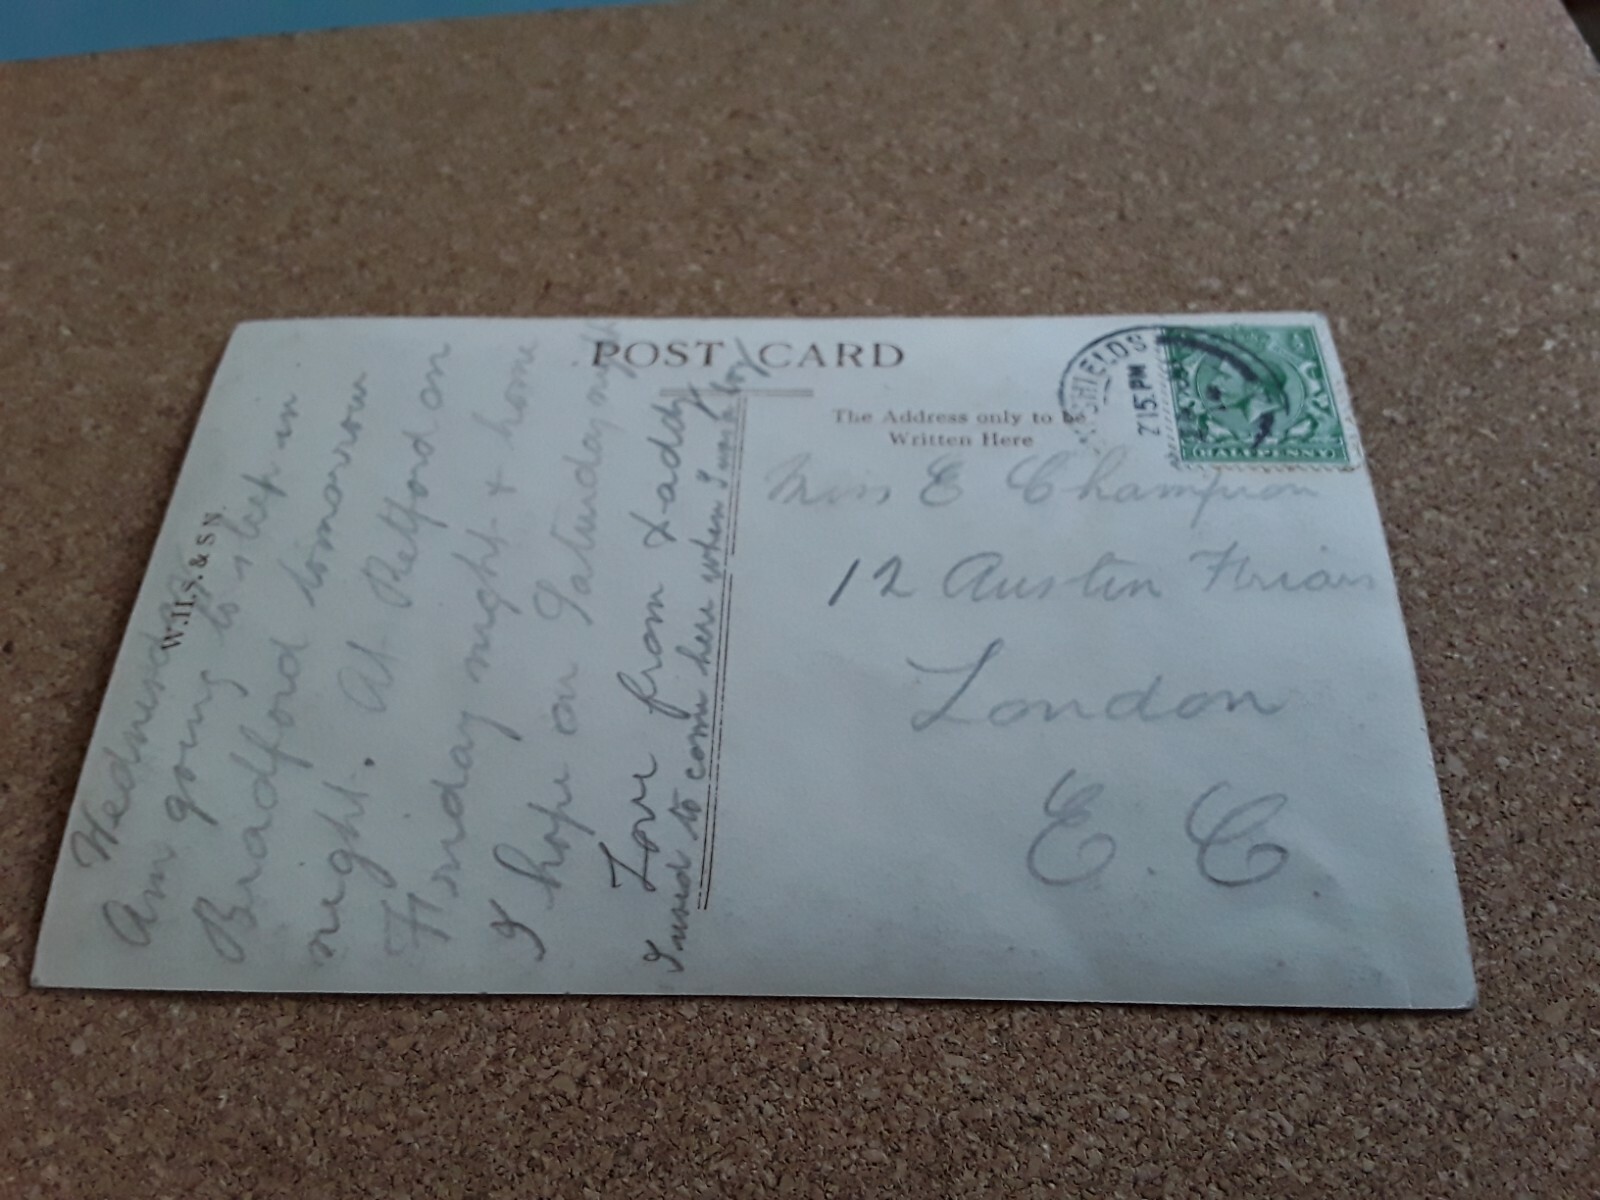 POST CARD
The Address only to be
Written Here
W.H.S. & S N.
SHIELDS
2 15 PM
HALFPENNY
Wednesday
Am going to sleep in
Bradford tomorrow
night. At Retford on
Friday night & home
I hope on Saturday night
Love from Daddy
I used to come here when I was a boy
Miss E Champion
12 Austin Friars
London
E. C.